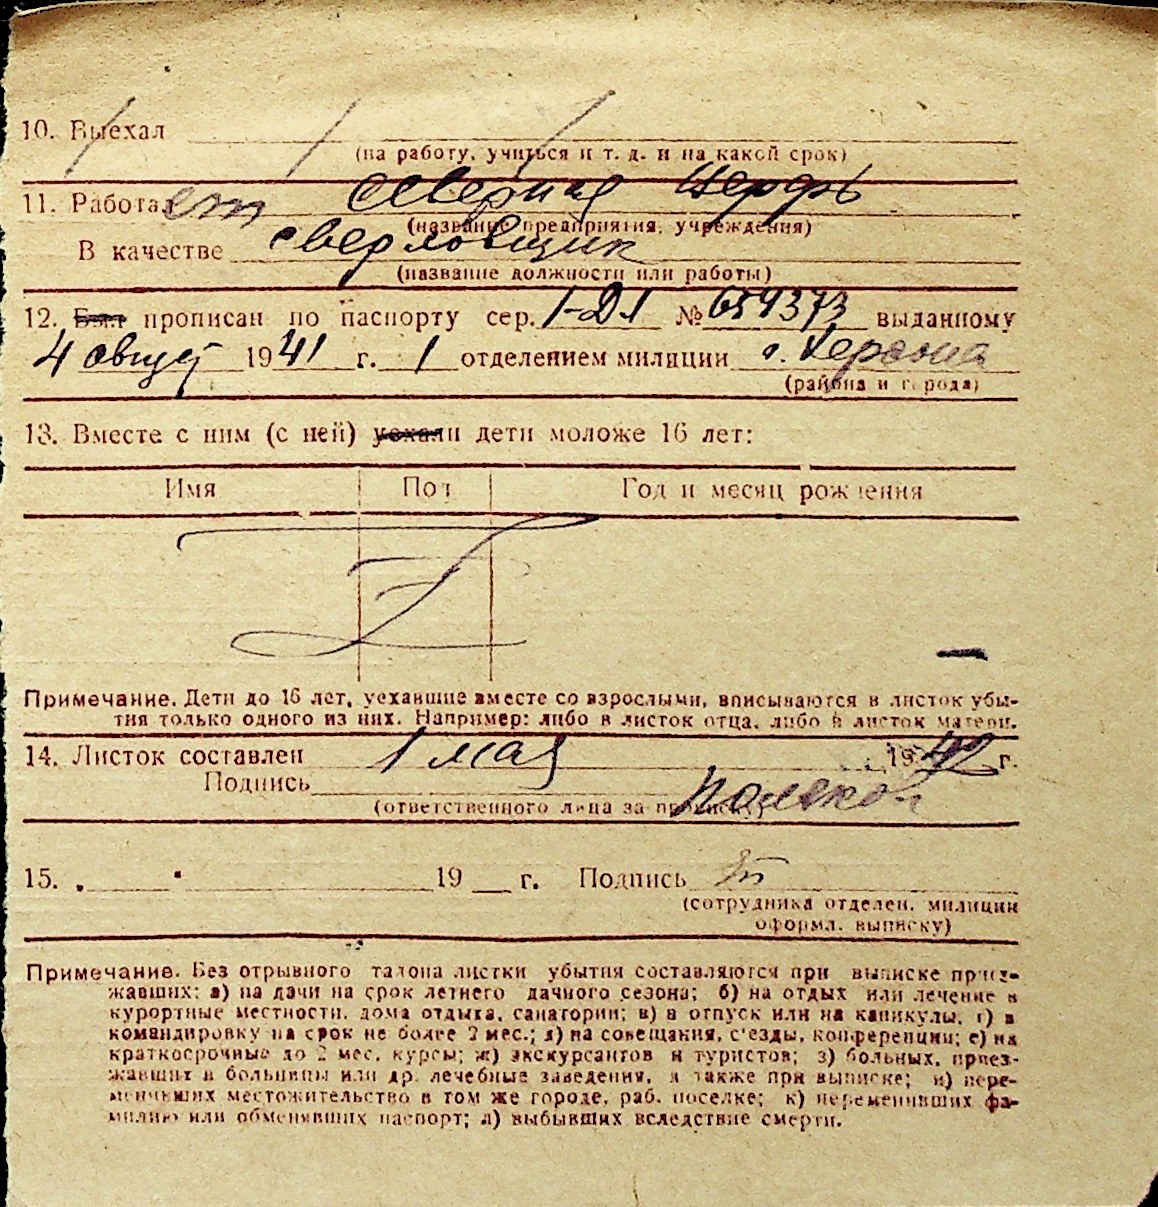 10. Выехал
(на работу, учиться и т. д. и на какой срок)
11. Работает Северная верфь
(название предприятия, учреждения)
В качестве сверловщик
(название должности или работы)
12. Был прописан по паспорту сер. № 659373 выданному
4 август 1941 г. 1 отделением милиции г. Херсона
(района и города)
13. Вместе с ним (с ней) уехали дети моложе 16 лет:
Имя Пол Год и месяц рождения
Примечание. Дети до 16 лет, уехавшие вместе со взрослыми, вписываются в листок убы-
тия только одного из них. Например: либо в листок отца, либо в листок матери.
14. Листок составлен 1 мая 1942 г.
Подпись
(ответственного лица за прописку)
15. „ “ 19 г. Подпись
(сотрудника отделен. милиции
оформл. выписку)
Примечание. Без отрывного талона листки убытия составляются при выписке приез-
жавших: а) на дачи на срок летнего дачного сезона; б) на отдых или лечение в
курортные местности, дома отдыха, санатории; в) в отпуск или на каникулы, г) в
командировку на срок не более 2 мес.; д) на совещания, с'езды, конференции; е) на
краткосрочные до 2 мес. курсы; ж) экскурсантов и туристов; з) больных, приез-
жавших в больницы или др. лечебные заведения, а также при выписке; и) пере-
менивших местожительство в том же городе, раб. поселке; к) переменивших фа-
милию или обменявших паспорт; л) выбывших вследствие смерти.